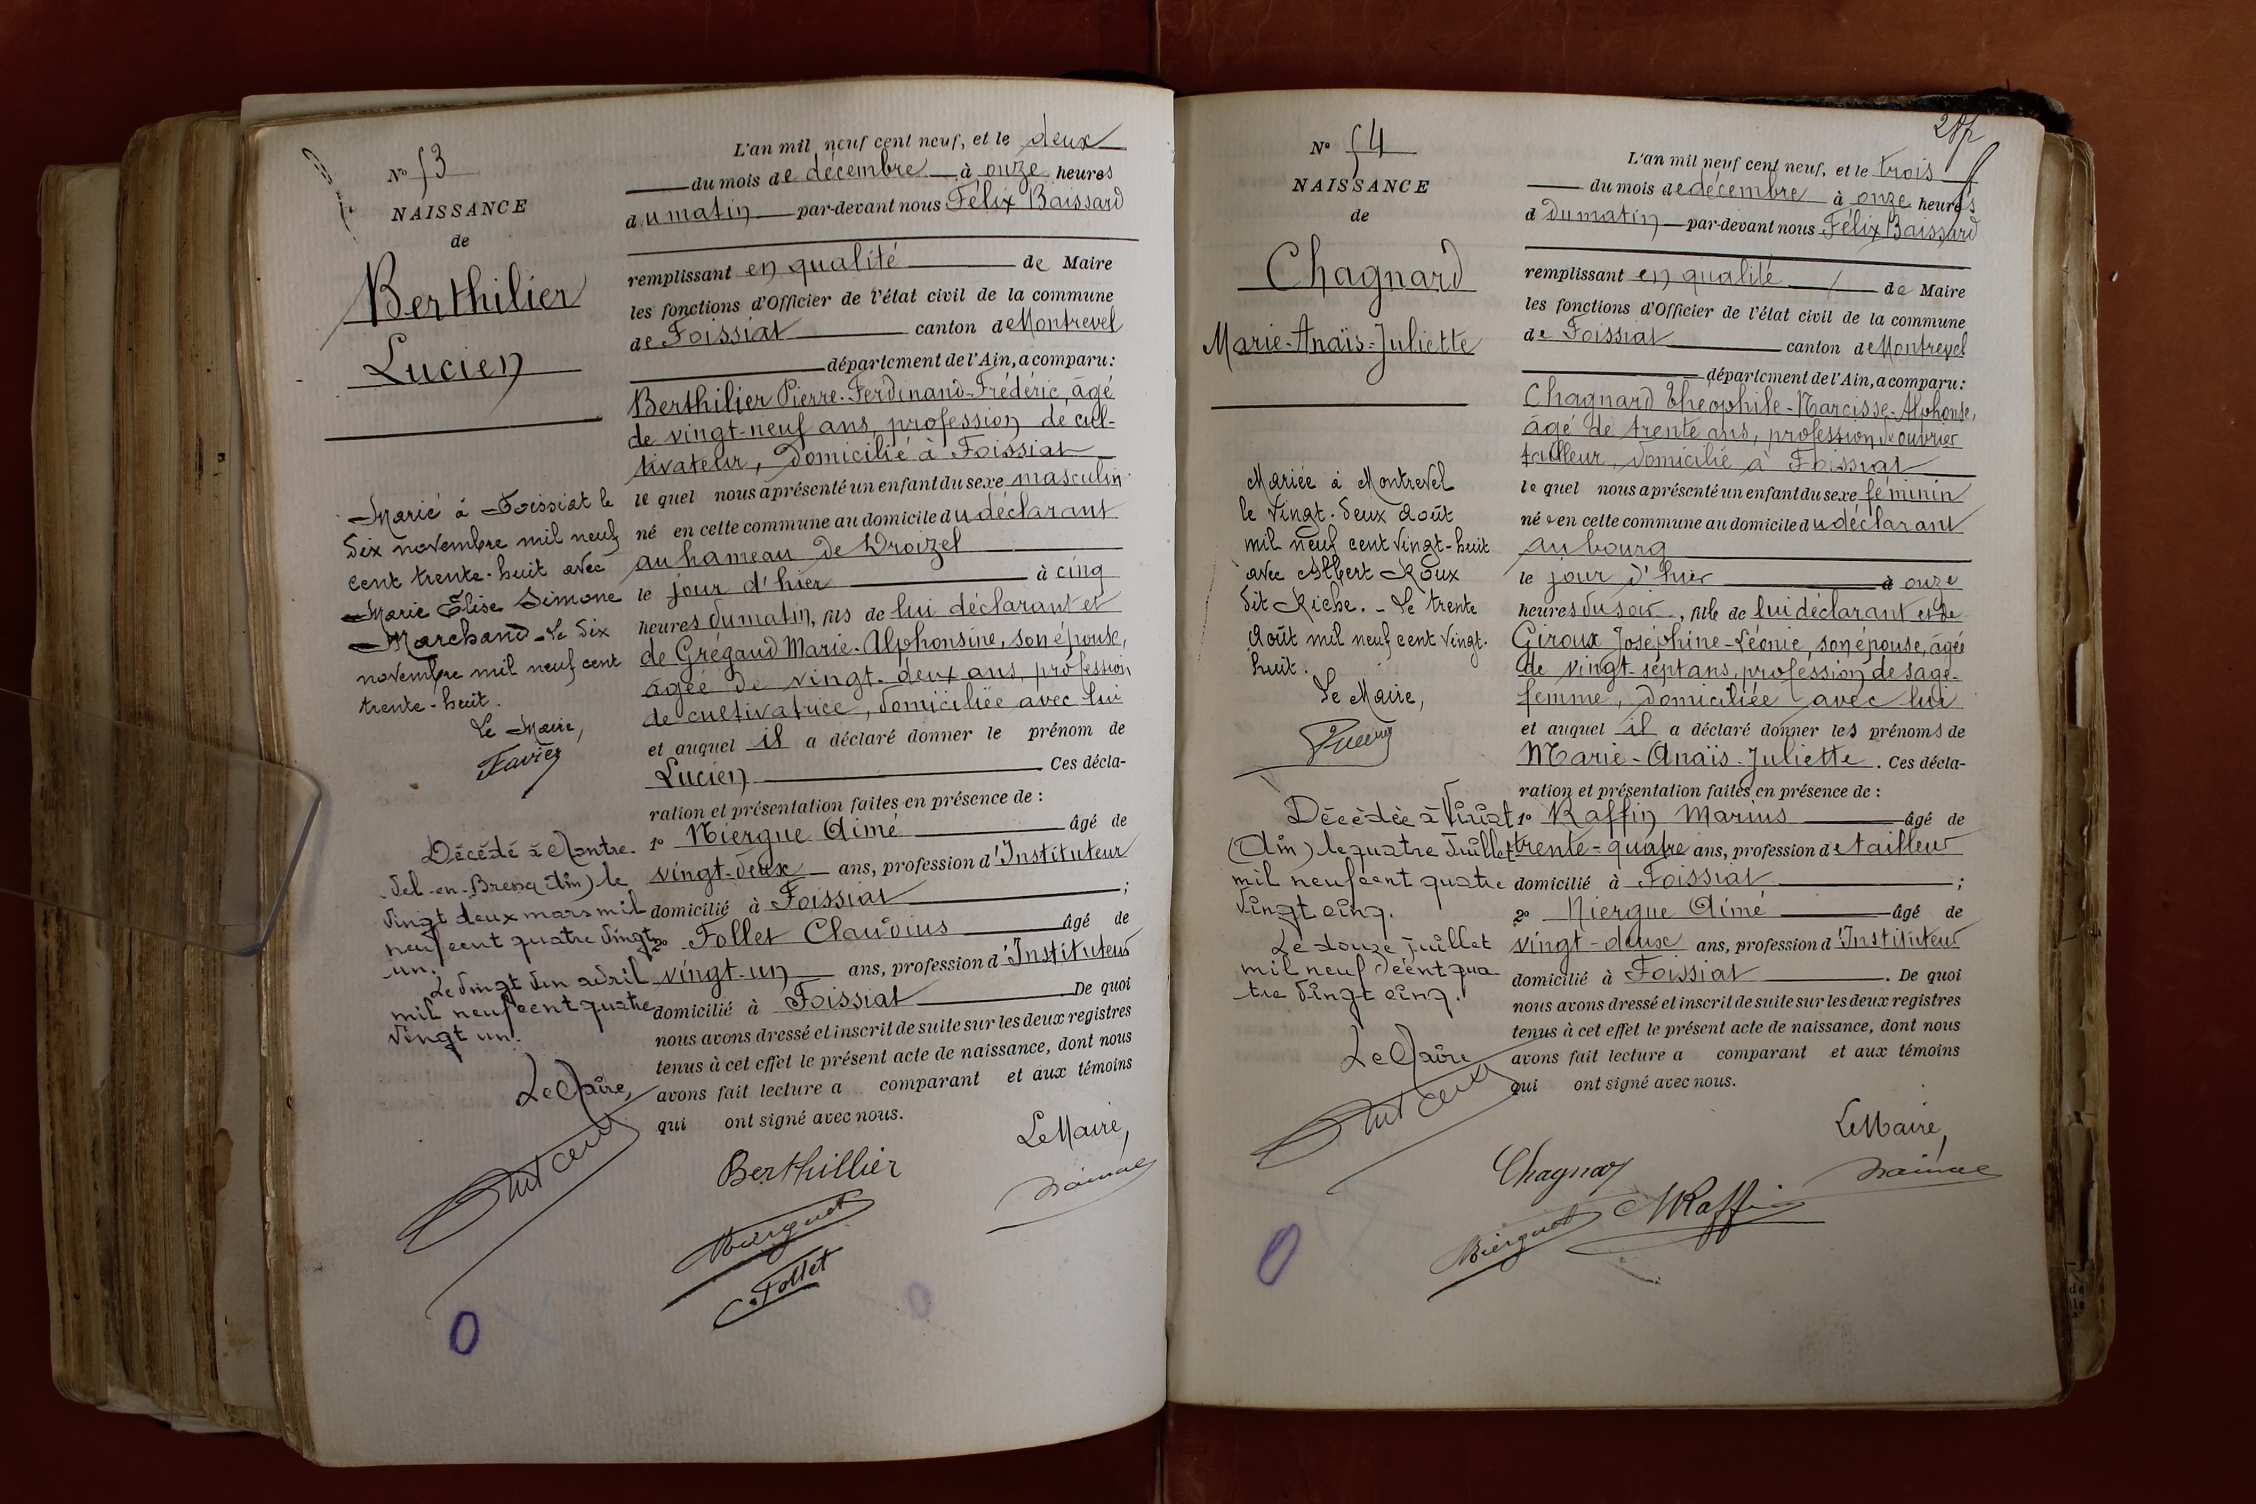 N° 53
NAISSANCE
de
Berthilier
Lucien
Marié à Foissiat le
dix novembre mil neuf
cent trente-huit avec
Marie Élise Simone
Marchand. Le dix
novembre mil neuf cent
trente-huit.
Le Maire,
Favier
Décédé à Montre-
vel-en-Bresse (Ain) le
vingt deux mars mil
neuf cent quatre vingt
un.
Le vingt un avril
mil neuf cent quatre
vingt un.
Le Maire,
L'an mil neuf cent neuf, et le deux
du mois de décembre à onze heures
du matin par-devant nous Félix Baissard
remplissant en qualité de Maire
les fonctions d'Officier de l'état civil de la commune
de Foissiat canton de Montrevel
département de l'Ain, a comparu:
Berthilier Pierre-Ferdinand-Frédéric, âgé
de vingt-neuf ans, profession de cul-
tivateur, domicilié à Foissiat
le quel nous a présenté un enfant du sexe masculin
né en cette commune au domicile du déclarant
au hameau de Droizel
le jour d'hier à cinq
heures du matin, fils de lui déclarant et
de Grégaud Marie-Alphonsine, son épouse,
âgée de vingt-deux ans, profession
de cultivatrice, domiciliée avec lui
et auquel il a déclaré donner le prénom de
Lucien Ces décla-
ration et présentation faites en présence de :
1° Niergue Aimé âgé de
vingt-deux ans, profession d'Instituteur
domicilié à Foissiat ;
2° Follet Claudius âgé de
vingt-un ans, profession d'Instituteur
domicilié à Foissiat De quoi
nous avons dressé et inscrit de suite sur les deux registres
tenus à cet effet le présent acte de naissance, dont nous
avons fait lecture a comparant et aux témoins
qui ont signé avec nous.
Le Maire,
Berthillier
C. Follet
N° 54
NAISSANCE
de
Chagnard
Marie-Anaïs-Juliette
Mariée à Montrevel
le vingt-deux août
mil neuf cent vingt-huit
avec Albert Roux
dit Riche. - Le trente
août mil neuf cent vingt-
huit.
Le Maire,
Décédée à Viriat
(Ain) le quatre juillet
mil neuf cent quatre
vingt cinq.
Le douze juillet
mil neuf cent qua
tre vingt cinq.
Le Maire
L'an mil neuf cent neuf, et le trois
du mois de décembre à onze heures
d du matin par-devant nous Félix Baissard
remplissant en qualité de Maire
les fonctions d'Officier de l'état civil de la commune
de Foissiat canton de Montrevel
département de l'Ain, a comparu:
Chagnard Théophile-Narcisse-Alphonse,
âgé de trente ans, profession de ouvrier
tailleur, domicilié à Foissiat
le quel nous a présenté un enfant du sexe féminin
née en cette commune au domicile du déclarant
au bourg
le jour d'hier à onze
heures du soir, fille de lui déclarant et de
Giroux Joséphine-Léonie, son épouse, âgée
de vingt-sept ans, profession de sage-
femme, domiciliée avec lui
et auquel il a déclaré donner les prénoms de
Marie-Anaïs-Juliette. Ces décla-
ration et présentation faites en présence de :
1° Raffin Marius âgé de
trente-quatre ans, profession de tailleur
domicilié à Foissiat ;
2° Niergue Aimé âgé de
vingt-deux ans, profession d'Instituteur
domicilié à Foissiat. De quoi
nous avons dressé et inscrit de suite sur les deux registres
tenus à cet effet le présent acte de naissance, dont nous
avons fait lecture a comparant et aux témoins
qui ont signé avec nous.
Le Maire,
Chagnar
MRaffin